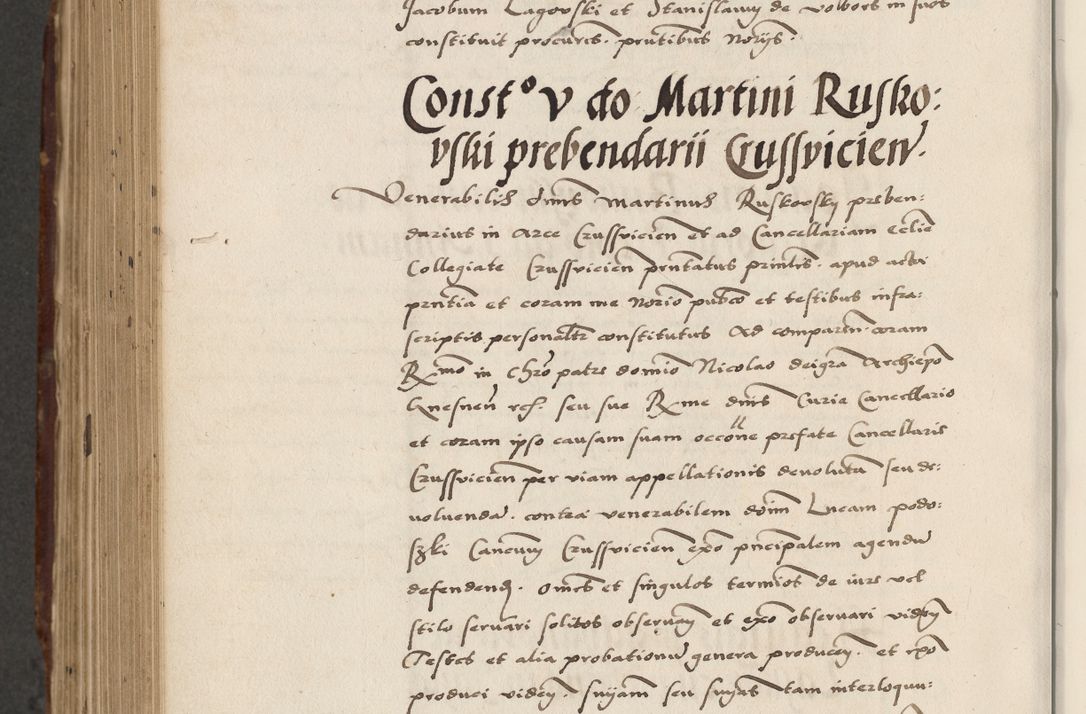 Jacobum Lagovski et Stanislaum de volbors in suos
constituit procures. prntibus Norys.
Const° v do Martini Rusko:
vski prebendarii Crussvicien.
Venerabilis dnus Martinus Ruskovsky preben:
darius in Arce Crussvicien et ad Cancellariam Eclie
Collegiate Crussvicien prntatus prinlis. apud acta
prntia et coram me Norio pubco et testibus infra:
scriptis personaltr constitutus Ad comparen. coram
Rxmo in Chro patre domino Nicolao dei gra Archiepo
Gnesnen ref. seu sue Rxme dnis Curie Cancellario
et coram ipso causam suam occone prefate Cancellarie
Crussvicien per viam appellationis devolutam seu de:
voluenda. contra venerabilem doim Lucam podo:
szki Cancum Crussvicien exo pncipalem agendum
defendend. Omes et singulos termios de iure vel
stilo servari solitos observam et exo observari viden
Testes et alia probationum genera producen. et exo
produci viden. suyam seu suyas tam interloquu: